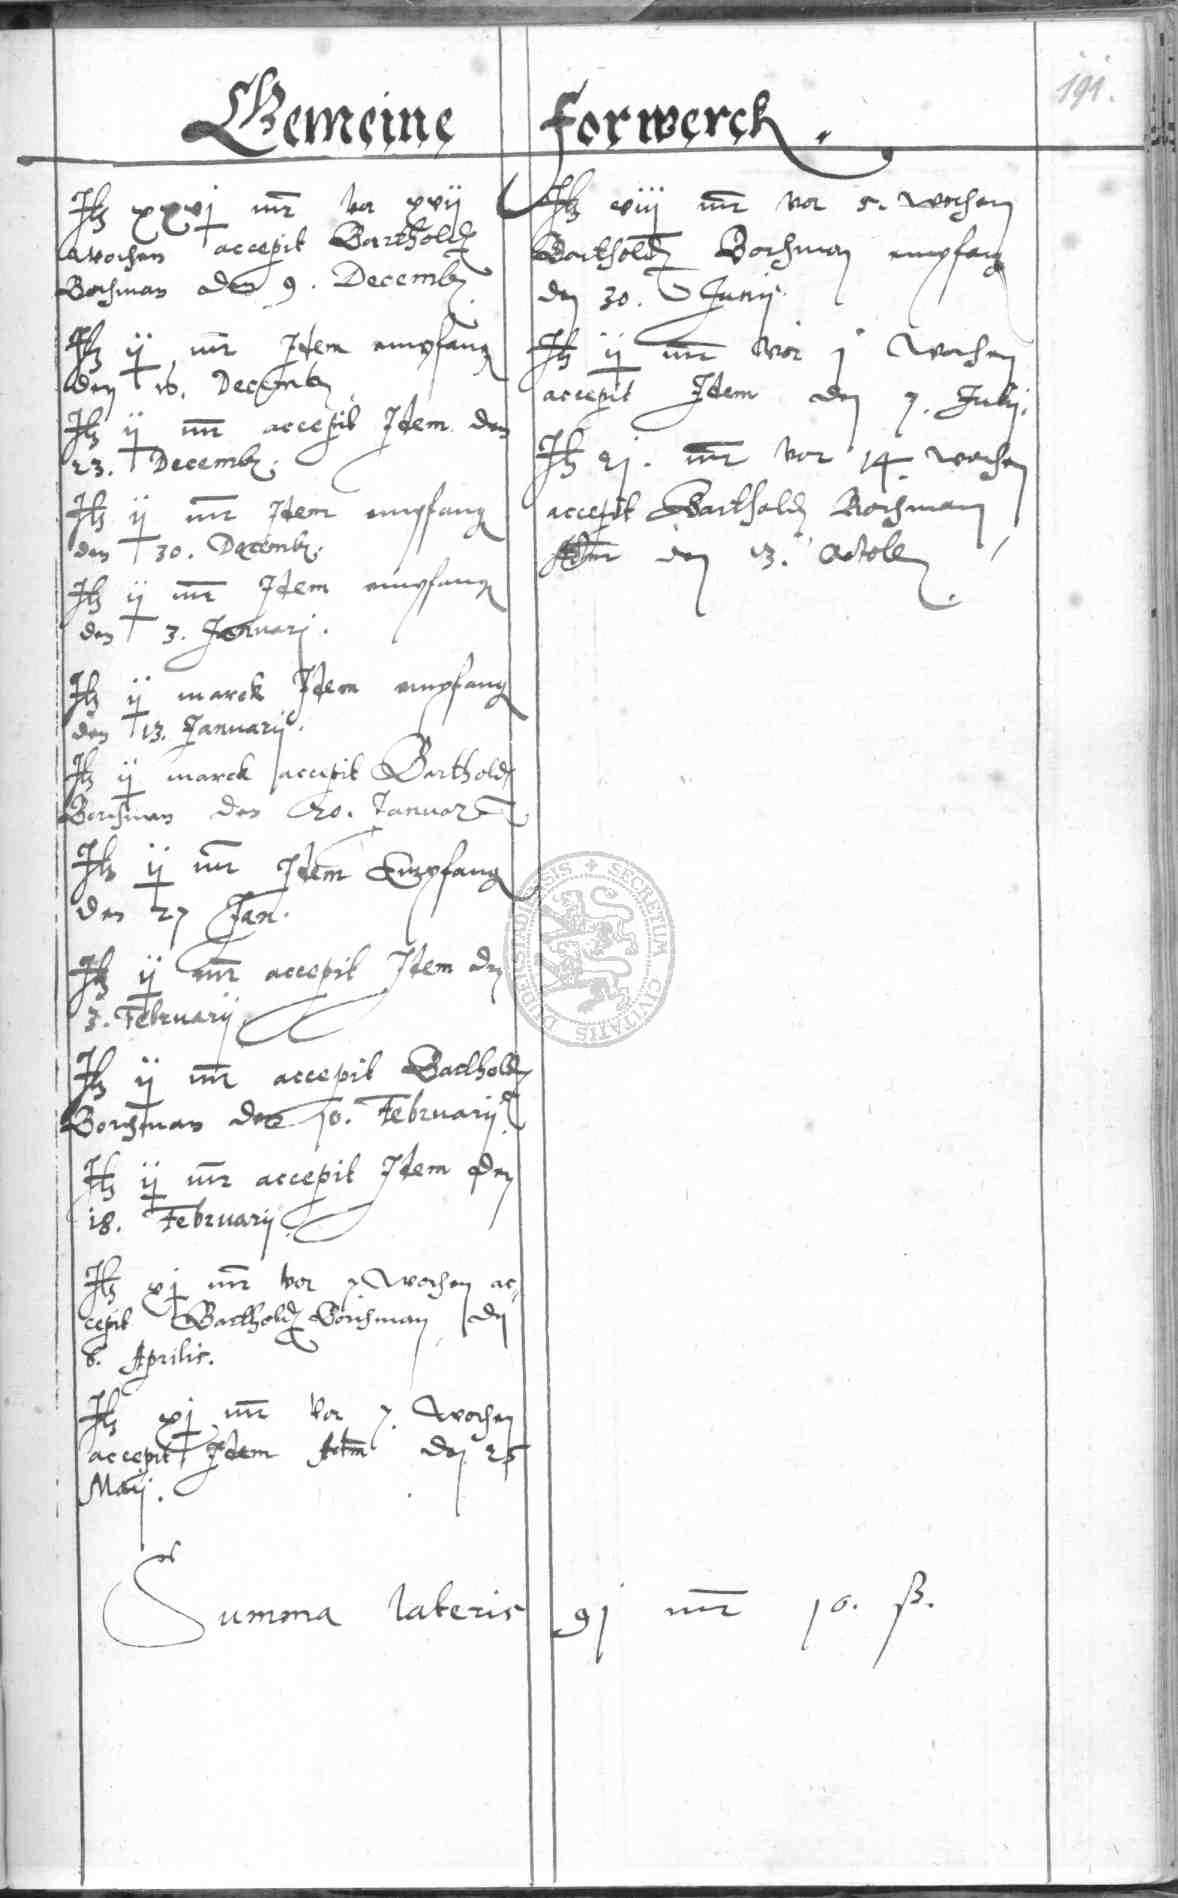 191.
Gemeine Forwerck.
Itz xxvj mr vor xvij
wochen accepit Barthold
Borchman den 9. Decemb.
Itz ij mr Idem empfang
den 16. Decemb.
Itz ij mr accepit Idem den
23. Decemb.
Itz ij mr Idem empfang
den 30. Decemb.
Itz ij mr Idem empfang
den 3. Januarj.
Itz ij marck Idem empfang
den 13. Januarij.
Itz ij marck accepit Barthold
Borchman den 20. Januar
Itz ij mr Idem Empfang
den 27 Jan.
Itz ij mr accepit Idem den
3. Februarij
Itz ij mr accepit Barthold
Borchman den 10. Februarij
Itz ij mr accepit Idem den
18. Februarij.
Itz xj mr vor 7 Wochen ac-
cepit Barthold Borchman den
6. Aprilis.
Itz xj mr vor 7. Wochen
accepit Idem den 25
Maij.
Itz viij mr vor 5. wochen
Barthold Borchman empfang
den 30. Junij.
Itz ij mr vor j Wochen
accepit Idem den 7. Julij.
Itz 21. mr vor 14. wochen
accepit Barthold Borchman
den 13. Octob.
Summa lateris 91 mr 10. ß.
SECRETUM CIVITATIS DUDERSTADENSIS